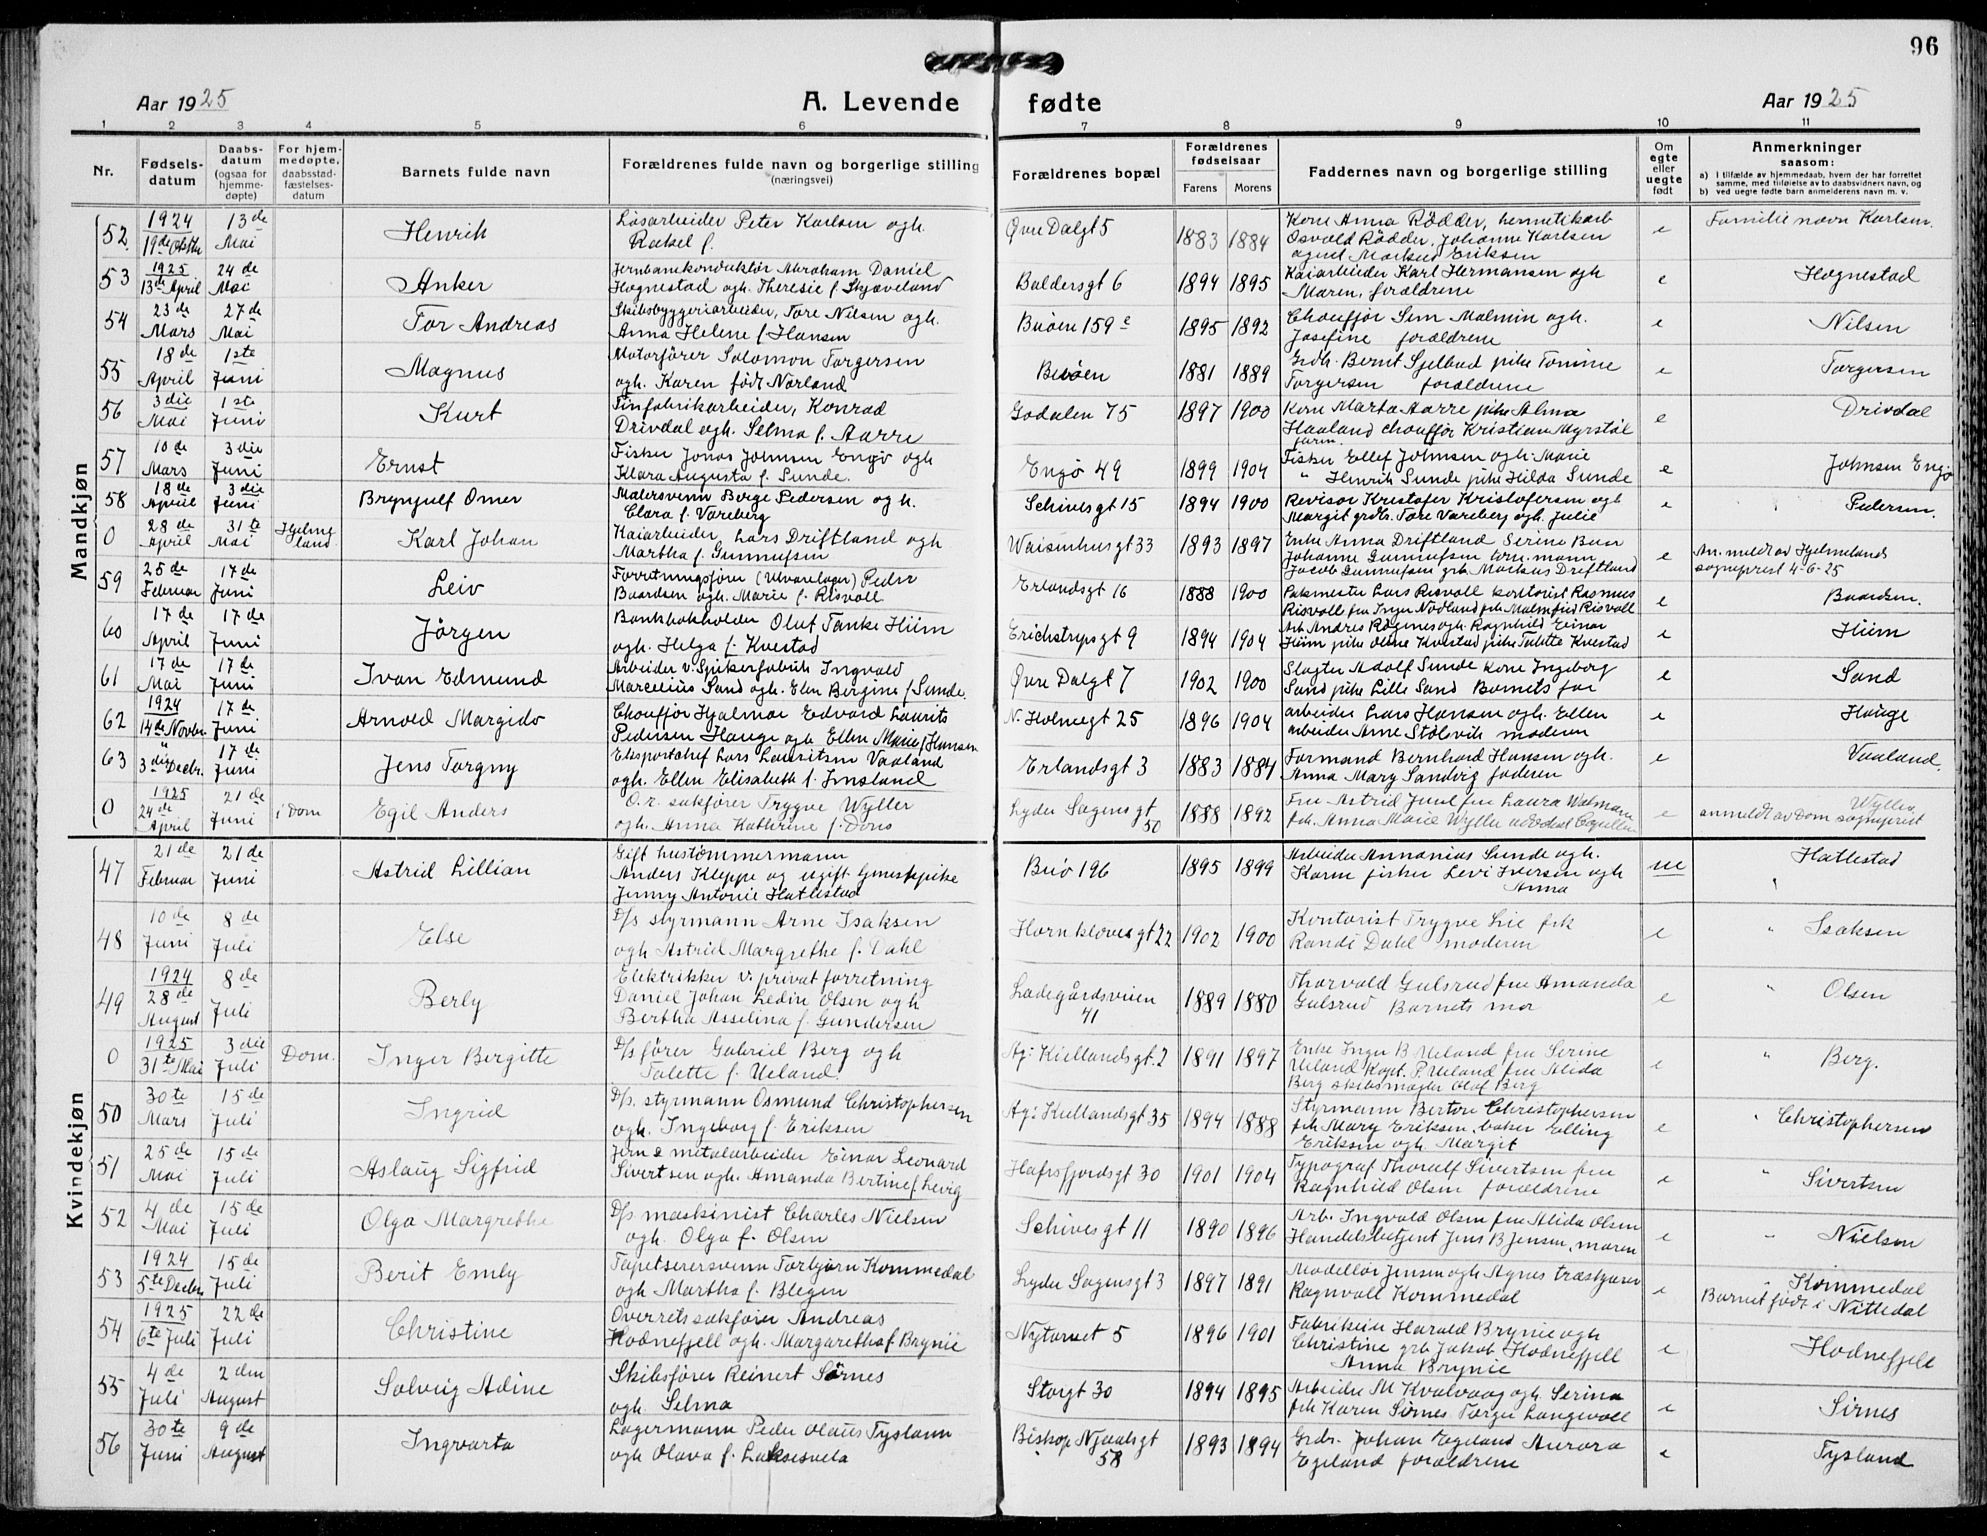 96
Aar 1925
A. Levende fødte
Aar 1925
1 2 3 4 5 6 7 8 9 10 11
Nr.
Fødsels-datum
Daabs-datum (ogsaa for hjemme-døpte)
For hjem-medøpte, daabsstad-fæstelses-datum
Barnets fulde navn
Forældrenes fulde navn og borgerlige stilling (næringsvei)
Forældrenes bopæl
Forældrenes fødselsaar
Farens Morens
Faddernes navn og borgerlige stilling
Om egte eller uegte født
Anmerkninger saasom:
a) i tilfælde av hjemmedaab, hvem der har forrettet samme, med tilføielse av to daabsvidners navn, og
b) ved uegte fødte barn anmelderens navn m. v.
Mandkjøn
52. 1924 19de Oktbr 13de Mai Henrik Løsarbeider Peter Karlsen ogh. Rakel f. Øvre Dalgt 5 1883 1884 Kone Anna Rødder, hermetikarb Osvald Rødder, Johanne Karlsen Markus Eriksen e Familienavn Karlsen
53 1925 13de April 24de Mai Anker Jernbanekonduktør Abraham Daniel Hognestad ogh. Theresie f. Skjæveland Baldersgt 6 1894 1895 Kaiarbeider Karl Hermansen ogh Maren, forældrene e Hognestad
54 23de Mars 27de Mai Tor Andreas Skibsbyggeriarbeider, Tore Nilsen ogh. Anna Helene f Hansen Buøen 159 c 1895 1892 Chouffør Sem Malmin ogh. Josefine forældrene e Nilsen
55 18de April 1ste Juni Magnus Motorfører Solomon Torgersen ogh. Karen født Nørland Buøen 1881 1889 Grdb. Bernt Sjelbud pike Tomine Torgersen forældrene e Torgersen
56 3die Mai 1ste Juni Kurt Tinfabrikarbeider, Konrad Drivdal ogh. Selma f. Aarre Godalen 75 1897 1900 Kone Marta Aarre pike Alma Haaland chouffør Kristian Myrstøl farm. e Drivdal
57 10de Mars 3die Juni Ernst Fisker Jonas Johnsen Engø ogh Klara Augusta f. Sunde. Engø 49 1899 1904 Fisker Ellef Johnsen ogh. Marie " Henrik Sunde pike Hilda Sunde e Johnsen Engø
58 18de April 3die Juni Bryngulf Omer Malersvenn Børge Pedersen og h. Clara f. Vareberg Schivesgt 15 1894 1900 Revisor Kristofer Kristofersen ogh Margit grdbr. Tore Vareberg ogh. Julie e Pedersen.
0 28de April 31te Mai Hjelmeland Karl Johan Kaiarbeider Lars Driftland ogh Martha f. Gunnufsen Waisenhusgt 33 1893 1897 Enke Anna Driftland Serine Buer Johanne Gunnufsen mann Jacob Gunnufsen grb. Markus Driftland e Anmeldt av Hjelmelands sogneprest 4-6-25
59 25de Februar 17de Juni Leiv Forretningsfører (Utvarelager) Peder Baardsen ogh. Marie f. Risvoll Erlandsgt 16 1888 1900 Pakmester Lars Risvoll kontorist Rasmus Risvoll fru Inga Nodland frk Malmfrid Risvoll e Baardsen.
60 17de April 17de Juni Jørgen Bankbokholder Oluf Tanke Hiim ogh. Helga f. Kvestad Erichstrupsgt 9 1894 1904 Arb Andres Rognes ogh. Ragnhild Einar Hiim pike Oline Kvestad pike Talette Kvestad e Hiim
61 17de Mai 17de Juni Ivan Edmund Arbeider v. Spikerfabrik Ingvald Marcelius Sand ogh. Elen Bergine f Sunde. Øvre Dalgt 7 1902 1900 Slagter Adolf Sunde Kone Ingeborg Sand pike Lille Sand Barnets far e Sand
62 1924 14de Novbr. 17de Juni Arnold Margido Chouffør Hjalmar Edvard Laurits Pedersen Hauge ogh Ellen Marie f Hansen N. Holmegt 25 1896 1904 arbeider Lars Hansen ogh. Ellen arbeider Arne Stølsvik moderen e Hauge
63 " 3die Decbr. 17de Juni Jens Torgny Eksportchef Lars Lauritsen Vaaland ogh. Ellen Elisabeth f. Imsland Erlandsgt 3 1883 1884 Formand Bernhard Hansen ogh. Anna Mary Sandvig faderen e Vaaland.
0 1925 24de April 21de Juni i Dom Egil Anders O.r. sakfører Trygve Wyller ogh. Anna Kathrine f. Dons Lyder Sagensgt 50 1888 1892 Fru Astrid Juul fru Laura Walmann frk. Anna Marie Wyller advokat Capellen e Wyller anmeldt av Dom sogneprest
Kvindekjøn
47 21de Februar 21de Juni Astrid Lillian Gift hustømmermann Anders Kleppe og ugift tjenestepike Jenny Antonie Hatlestad Buø 196 1895 1899 Arbeider Annanias Sunde ogh. Karin fisker Levi Iversen ogh Anna ue Hatlestad
48 10de Juni 8de Juli Else D/s styrmann Arne Isaksen ogh Astrid Margrethe f. Dahl Hornklovesgt 22 1902 1900 Kontorist Trygve Lie frk Randi Dahl moderen e " Isaksen
49 1924 28de August 8de Juli Berly Elektrikker v. privat forretning Daniel Johan Ledin Olsen ogh Bertha Asselina f. Gundersen Ladegårdsveien 41 1889 1880 Thorvald Gulsrud fru Amanda Gulsrud Barnets mor e " Olsen
0 1925 31te Mai 3die Juli Dom. Inger Bergitte D/s fører Gabriel Berg ogh Talette f. Ueland. Ag: Kiellandsgt. 2 1891 1897 Enke Inga B. Ueland fru Serine Ueland Kapt. P. Ueland fru Alida Berg skibsmægler Olaf Berg e " Berg.
50 30te Mars 15de Juli Ingrid D/s. styrmann Osmund Christophersen ogh. Ingeborg f. Eriksen Ag: Kiellandsgt 35 1894 1888 Styrmann Bertre Christophersen frk Mary Eriksen, baker Elling Eriksen ogh. Margit e " Christophersen
51 25de Mai 15de Juli Aslaug Sigfrid Jern & metalarbeider Einar Leonard Sivertsen ogh. Amanda Bertine f Levig Hafrsfjordsgt 30 1901 1904 Typograf Thoralf Sivertsen fru Ragnhild Olsen forældrene e " Sivertsen
52 4de Mai 15de Juli Olga Margrethe D/s maskinist Charles Nielsen ogh. Olga f. Olsen Schivesgt 11 1890 1896 Arb. Ingvald Olsen fru Alida Olsen Handelsbetjent Jens B Jensen, moren e " Nielsen
53 1924 5te Decbr 15de Juli Berit Emly Tapetserersvenn Torbjørn Kommedal ogh. Martha f. Blegen Lyder Sagensgt 3 1897 1891 Modellør Jensen ogh. Agnes træskjærer Ragnvall Kommedal e Kommedal Barnet født i Nittedal
54 1925 6te Juli 22de Juli Christine Overretssakfører Andreas Hodnefjell ogh. Margarethe f Brynie Nytorvet 5 1896 1901 Fabrikeier Harald Brynie ogh Christine grb Jakob Hodnefjell Anna Brynie e Hodnefjell
55 4de Juli 2den August Solveig Adine Skibsfører Reinert Sørnes ogh. Selma Storgt 30 1894 1895 Arbeider M Kvalvaag ogh. Serina frk Karen Sirnes Torger Langvoll e Sirnes
56 30te Juni 9de August Ingvarta Lagermann Peder Olaus Tysland ogh Olava f. Laksesvela Biskop Njaalsgt 58 1893 1894 Grdr. Johan Egeland Aurora Egeland forældrene e Tysland